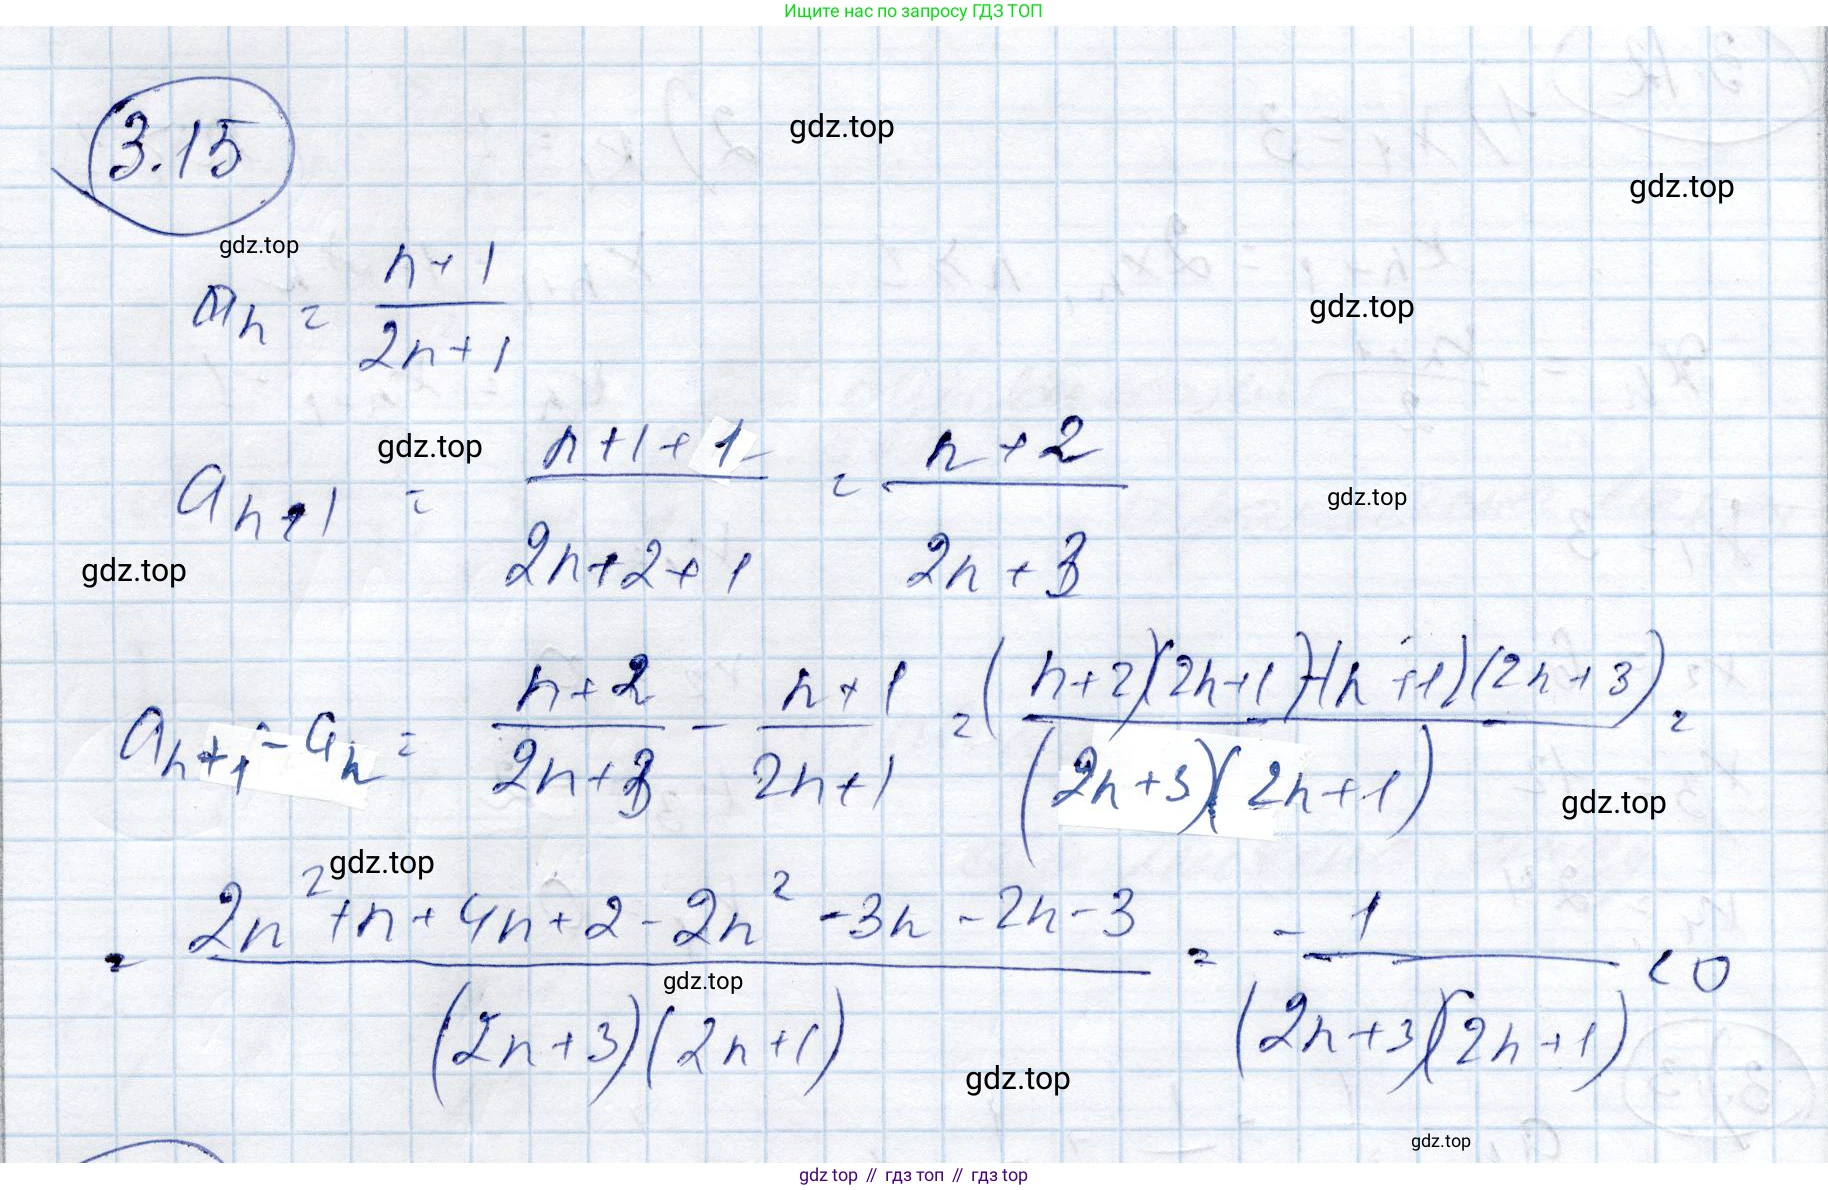 Ищите нас по запросу ГДЗ ТОП
3.15
gdz.top
gdz.top
gdz.top
a_n = (n+1)/(2n+1)
gdz.top
gdz.top
a_{n+1} = (n+1+1)/(2n+2+1) = (n+2)/(2n+3)
gdz.top
gdz.top
a_{n+1} - a_n = (n+2)/(2n+3) - (n+1)/(2n+1) = ((n+2)(2n+1)-(n+1)(2n+3))/((2n+3)(2n+1)) =
gdz.top
gdz.top
= (2n²+n+4n+2-2n²-3n-2n-3)/((2n+3)(2n+1)) = -1/((2n+3)(2n+1)) < 0
gdz.top
gdz.top
gdz.top
gdz top // гдз топ // гдз top